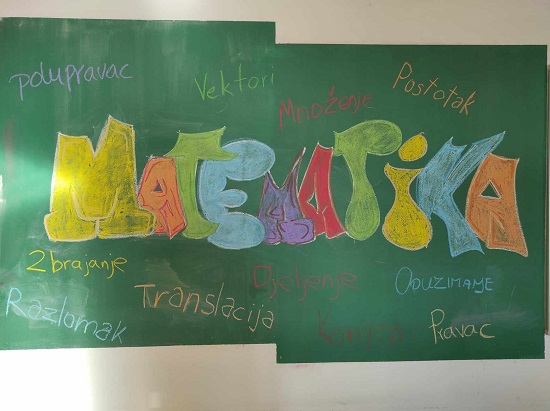 polupravac
Vektori
Množenje
Postotak
MATEMATIKA
Zbrajanje
Dijeljenje
Oduzimanje
Razlomak
Translacija
Pravac